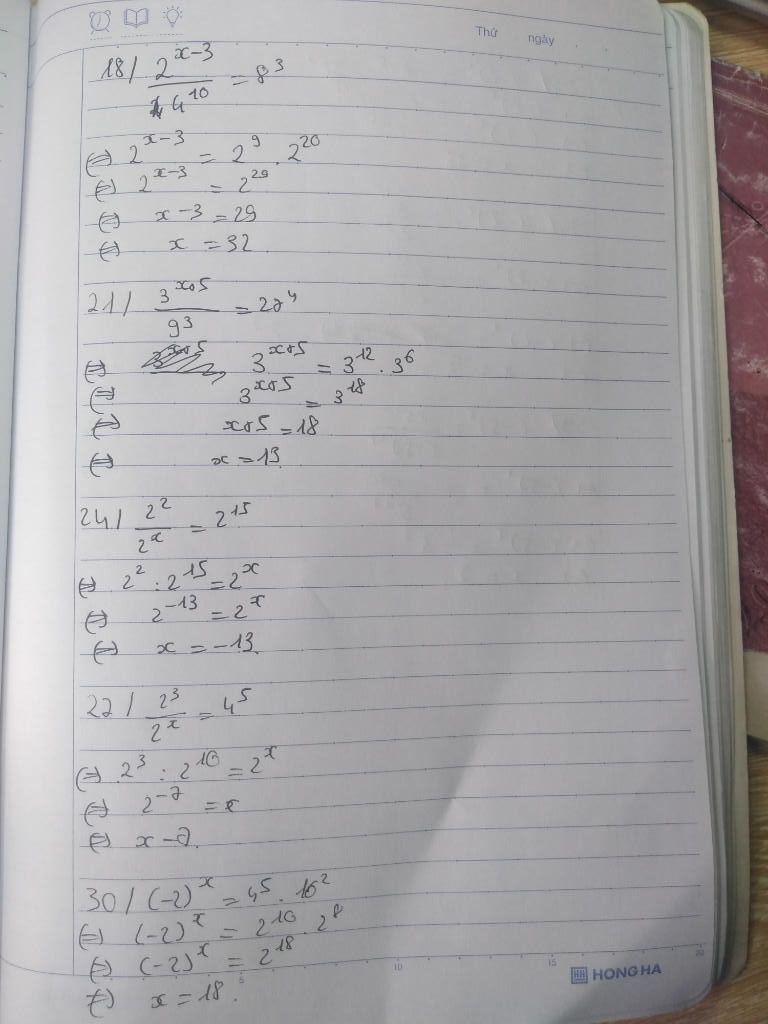 Thứ ngày
18/ 2^{x-3}/4^{10} = 8^3
(=) 2^{x-3} = 2^9 . 2^{20}
(=) 2^{x-3} = 2^{29}
(=) x-3 = 29
(=) x = 32
21/ 3^{x+5}/9^3 = 27^4
(=) 3^{x+5} = 3^{12} . 3^6
(=) 3^{x+5} = 3^{18}
(=) x+5 = 18
(=) x = 13
24/ 2^2/2^x = 2^{15}
(=) 2^2 : 2^{15} = 2^x
(=) 2^{-13} = 2^x
(=) x = -13.
27/ 2^3/2^x = 4^5
(=) 2^3 : 2^{10} = 2^x
(=) 2^{-7} = x
(=) x -7.
30/ (-2)^x = 4^5 . 16^2
(=) (-2)^x = 2^{10} . 2^8
(=) (-2)^x = 2^{18}
(=) x = 18.
5 10 15 20
HH HONG HA